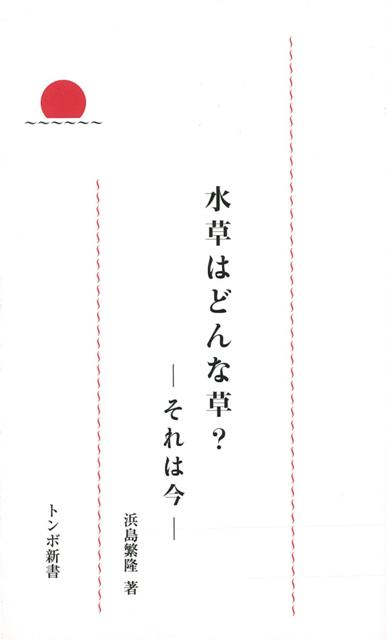 水草はどんな草？
―それは今―
浜島繁隆 著
トンボ新書